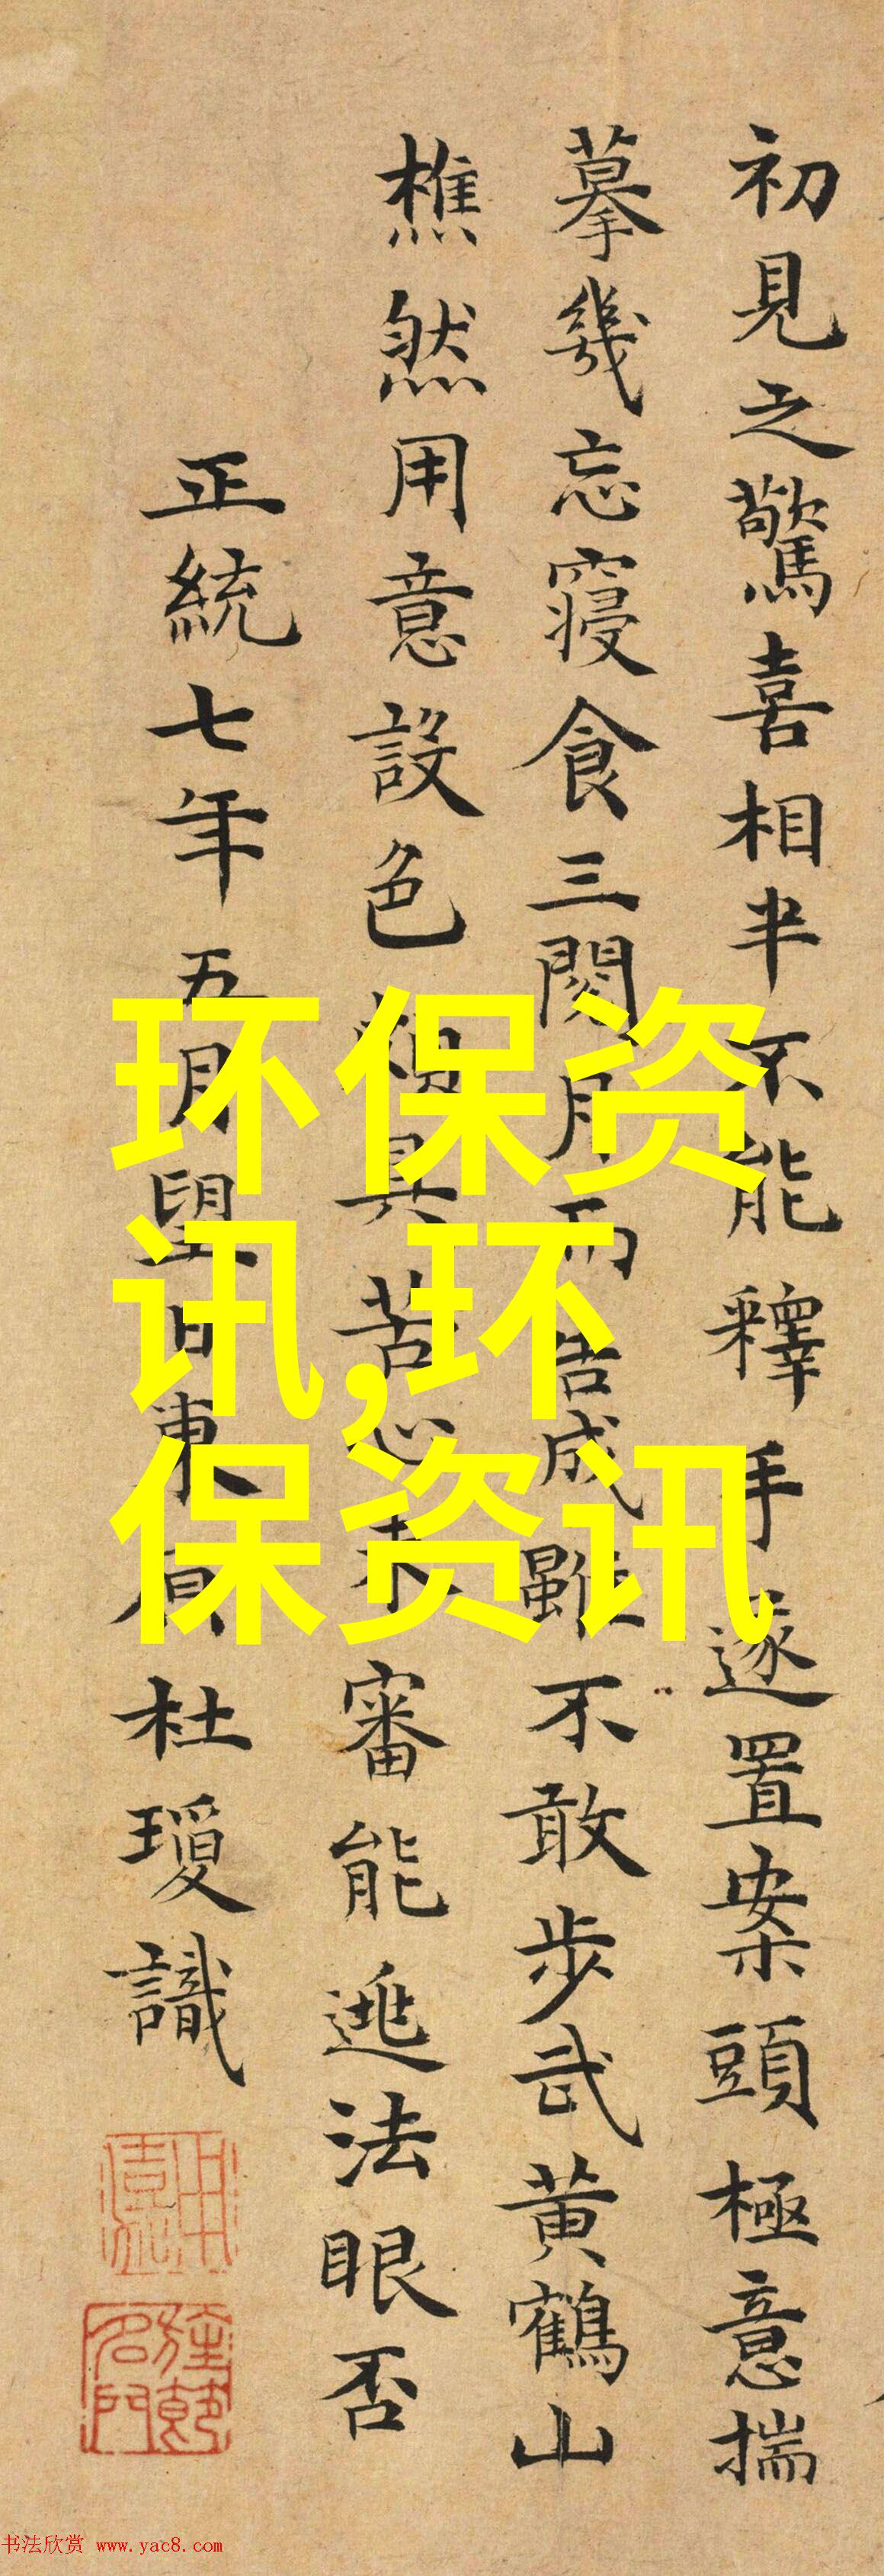 初見之驚喜相半不能釋手遂置案頭極意揣
摹幾忘寢食三閱月而告成雖不敢步武黃鶴山
樵然用意設色頗具苦心未審能逃法眼否
正統七年五月望日東原杜瓊識
环保资
讯,环
保资讯
书法欣赏 www.yac8.com